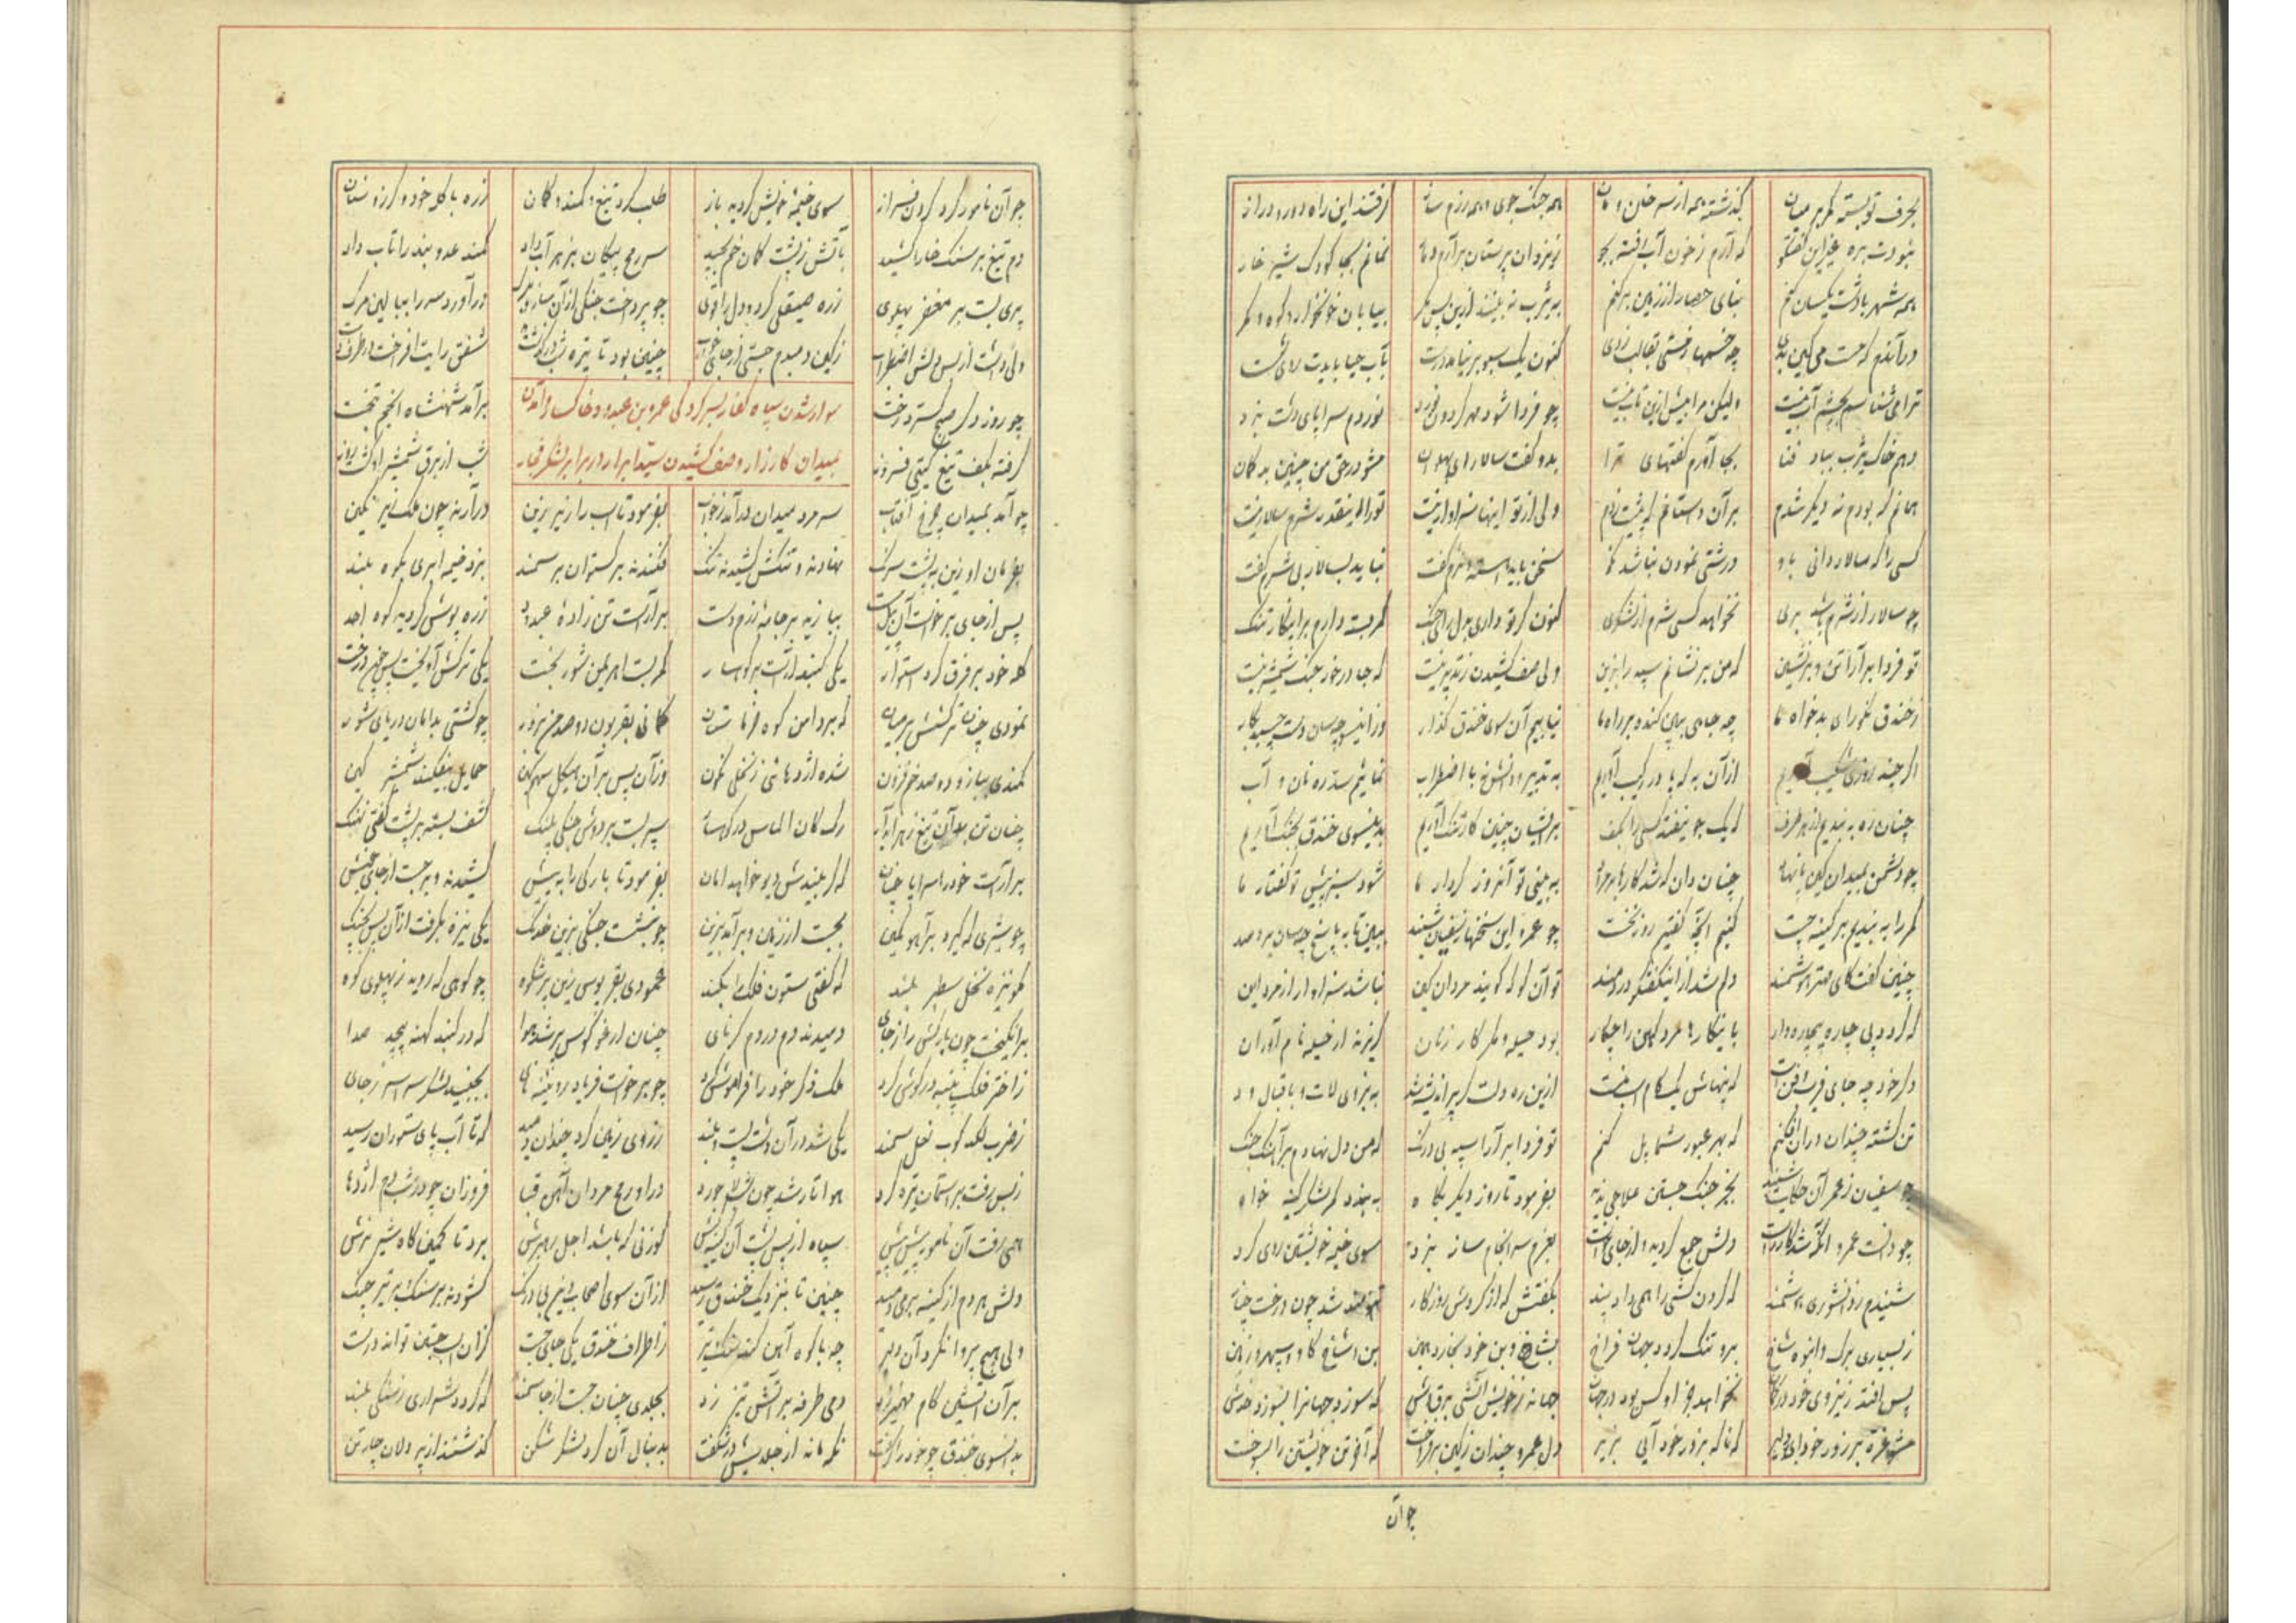 بحرف تو بسته کمر بر میان گذشته همه از سر خان و مان همه جنگ جوی و همه رزم ساز گرفتند این راه دور و دراز
نبودت بره غیر این گفتگو که آرم ز خون آب رفته بجو ز یزدان پرستان برآرم دمار نمانم بجا کودک شیر خوار
همه شهر با دشت یکسان کنم بنای حصار از زمین بر کنم به یثرب نه بینند ازین پس مگر بیابان خونخوار و کوه و کمر
چه خسمها کنون یک سبو بر نیامد درست بآب حیا بایدت روی شست
ترا می شناسم بچشم آب نیست ولیکن مرا بیش ازین تاب نیست چو فردا شود مهر گردون نورد نوردم سراپای دشت نبرد
دهم خاک یثرب بباد فنا بجا آورم گفتهای ترا بدو گفت سالار ای پهلوان مشو در حق من چنین بد گمان
همانم که بودم نه دیگر شدم بر آن داستانم که پیش زدم ولی از تو اینها سزاوار نیست تو را اینقدر شرم سالار نیست
کسی را که سالار دانی باو درشتی نمودن نباشد نکو سخن باید آهسته و نرم گفت نباید بسالار بی شرم گفت
چو سالار از شرم باشد بری نخواهد کسی شرم از لشکری کنون گر تو داری بدل رای جنگ کمر بسته دارم بر اینکار تنگ
تو فردا بر آرا تن و بر نشین که من بر نشانم سپه را بزین ولی صف کشیدن ز تدبیر نیست که جا در خور جنگ شمشیر نیست
ز خندق نگر رای بدخواه ما چه چاهی بپهن کنده بر راه ما نیاییم آن سوی خندق گذار وز اینسو چسان دست چسپد بکار
اگر چند روزی شکیب آوریم از آن به که پا در رکیب آوریم به تدبیر و دانش نه با اضطراب نمائیم سد ره نان و آب
چنان ره به بندیم از هر طرف که یک جو نیفتد کسی را بکف بر ایشان چنین کار تنگ آوریم بدینسوی خندق بجنگ آوریم
چو دشمن بمیدان کین پا نهاد چنان دان که شد کارها بر مراد به بینی تو آنروز کردار ما شود سبز پیش تو گفتار ما
کمر را به بندیم بر کینه چست کنیم آنچه گفتیم روز نخست چو عمرو این سخنها ز سفیان شنید ببین تا به پاسخ چسان بر دمید
چنین گفت کای مهتر هوشمند دلم شد از اینگفتگو دردمند تو آن گو که گویند مردان کین نباشد سزاوار از مرد این
که گردد پی چاره بیچاره وار باینکارها مرد کین را چکار بود حیله و مکر کار زنان گریزند از حیله نام آوران
دگر خود چه جای فریب و فن است که پنهانش یک گام اسب منست ازین ره دلت گر پر اندیشه شد به نیروی لات و باقبال ود
تن کشته چندان در آن افکنم که بهر عبور شما پل کنم تو فردا بر آرا سپه بی درنگ که من دل نهادم بر آهنگ جنگ
چو سفیان ز عمرو آن حکایت شنید بجز جنگ جستن علاجی ندید بفرمود تا روز دیگر پگاه به بندد کمر لشکر کینه خواه
چو دانست عمرو آنکه شد کار راست دلش جمع گردید و از جای خاست بعزم سرانجام ساز نبرد سوی خیمهٔ خویشتن روی کرد
شنیدم ز دانشوری هوشمند که گردن کشی را همی داد پند بگفتش که از گردش روزگار تنومند شد چون درخت چنار
ز بسیاری برگ و انبوه شاخ برو تنگ گردد جهان فراخ بشاخ و بن خود نخارد همین بن و شاخ گاو و سپهر و زمین
پس افتد ز نیروی خود در گمان نخواهد جز او کس بود در جهان جهاند ز خویش آتشی برق وش که سوزد جهانرا بسوزد خودش
مشو غره بر زور خود ای دلیر که ناگه بزور خود آیی بزیر دل عمرو چندان ز کین بر فروخت که آخر تن خویشتن را بسوخت
چو آن
چو آن نامور گرد گردن فراز سوی خیمهٔ خویش گردید باز طلب کرد تیغ و کمند و کمان زره با کله خود و گرز و سنان
دم تیغ بر سنگ خارا کشید بآتش ز پشت کمان خم کشید سر رمح پیکان بزهر آب داد کمند عدو بند را تاب داد
پری بست بر مغفر پهلوی زره صیقلی کرد و دل را قوی چو پرداخت جنگی از آن ساز و برگ در آورد سر را ببالین مرگ
ولی داشت از بس دلش اضطراب ز کین دمبدم جستی از جای خواب چنین بود تا تیره شب در گذشت شفق رایت افراخت در طرف دشت
سوار شدن سپاه کفار بسر کردگی عمرو بن عبدود خاک و آمدن
چو روز دگر صبح گسترد رخت برآمد شهنشاه انجم بتخت
بمیدان کارزار و صف کشیدن سید ابرار در برابر لشکر فجار
گرفته بکف تیغ گیتی فروز شب از برق شمشیر او گشت روز
چو آمد بمیدان چرخ آفتاب سر مرد میدان در آمد ز خواب بفرمود تا اسب را زیر زین در آرند چون ملک زیر نگین
بفرمان او زین به پشت سرنگ نهادند و تنگش کشیدند تنگ فکندند بر گستوان بر سمند بزد خیمه ابری بکوه بلند
پس از جای برخواست آن پیل مست بیازید بر جامهٔ رزم دست بر آراست تن زادهٔ عبدود زره پوش گردید کوه احد
کله خود بر فرق کرد استوار یکی گنبد آراست بر کوهسار کمر بست اهریمن شور بخت یکی ترکش آویخت پس چون درخت
نمودی چنان ترکشش بر میان که بر دامن کوه خرماستان کمانی بقربون دو صد من بزور چو کشتی بدامان دریای شور
کمندی ببازو دو صد خم فزون شده اژدهائی ز نخلی نگون وز آن پس بر آن هیکل سهمگین حمایل بیفکند شمشیر کین
چنان تن بدان تیغ زهر آبدار رگ کان الماس در کوهسار سپر بست بر دوش جنگی پلنگ کشف بسته بر پشت گفتی نهنگ
بر آراست خود را سراپا چنان که گر بیندش دیو خواهد امان بفرمود تا بارگی را به پیش کشیدند و بر جست از جای خویش
چو شیری که گیرد بر آهو کمین بجست از زمین و بر آمد بزین چو بنشست جنگی بزین خدنگ یکی نیزه بگرفت از آن پس بچنگ
نگو نیزه نخل سطبر بلند که گفتی ستون فلک را بکند عمودی بقربوس زین پر شکوه چو کوهی که روید ز پهلوی کوه
برانگیخت چون بارگی را ز جای دمیدند دم در دم کرنای چنان از غو کوس پر شد هوا که در گنبد کهنه پیچد صدا
ز اختر فلک پنبه در گوش کرد ملک ذکر خود را فراموش کرد چو برخواست فریاد رویینه نای بجنبید لشکر سراسر ز جای
ز ضرب لگد کوب نعل سمند یکی شد در آن دشت پست و بلند ز روی زمین گرد چندان دمید که تا آب پای ستوران رسید
ز بس رفت بر آسمان تیره گرد هوا تار شد چون شب لاجورد در او رمح مردان آهن قبا فروزان چو در شب دم اژدها
همی رفت آن نامور پیش پیش سپاه از پس پشت آن کینه کیش گوزنی که باشد اجل رهبرش برد تا کمینگاه شیر نرش
دلش هر دم از کینه بر می دمید چنین تا بنزدیک خندق رسید از آن سوی اصحاب دین بی درنگ گشودند بر سنگ و بر تیر چنگ
ولی هیچ پروا نکرد آن دلیر چه با کوه آهن کند سنگ و تیر ز اطراف خندق یکی جای جست کزان اسب جستن تواند درست
بر آن آتشین گام مهمیز زد دمی طرفه بر آتش تیز زد بجلدی چنان جست از جا سمند که گردد شراری ز سنگی بلند
بدانسوی خندق چو خود را گرفت نگه ماند از جلدیش در شگفت بدنبال آن گرد لشکر شکن گذشتند از پر دلان چار تن